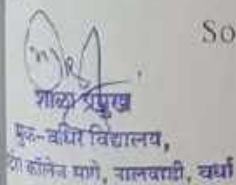 So
शाळा प्रमुख
मुक-बधिर विद्यालय,
कॉलेज मागे, नालवाडी, वर्धा